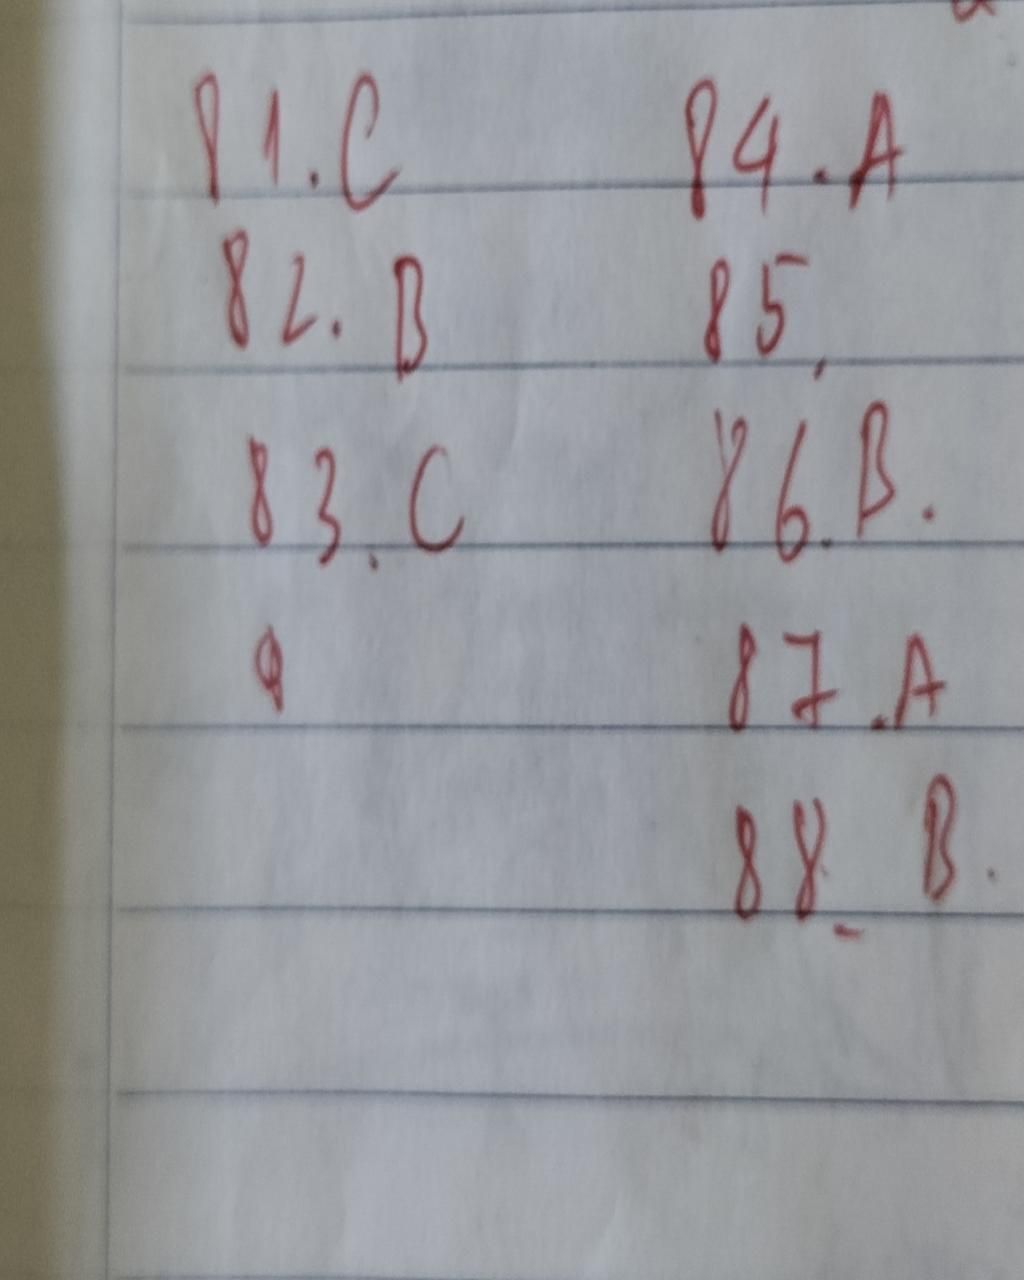 81. C
82. B
83. C
84. A
85.
86. B.
87. A
88. B.